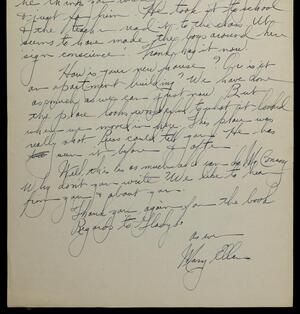 he think you
& just from. He took it to school
& the teacher read it to the class. Wp
seems to have made the boys around here
sign conscience. Frank has it now
How is your new house? Is it
an apartment building? We have done
as much as we can just now. But
the place looks wonderful to what it looked
when we moved in here. This place was
really shot. Jess could tell you. He has
seen it before & after
Well this is as much as I can do Mr
Why don't you write? We like to hear
from you & about you.
Thank you again for the book
Regards to Gladys
as ever
Mary Ellen